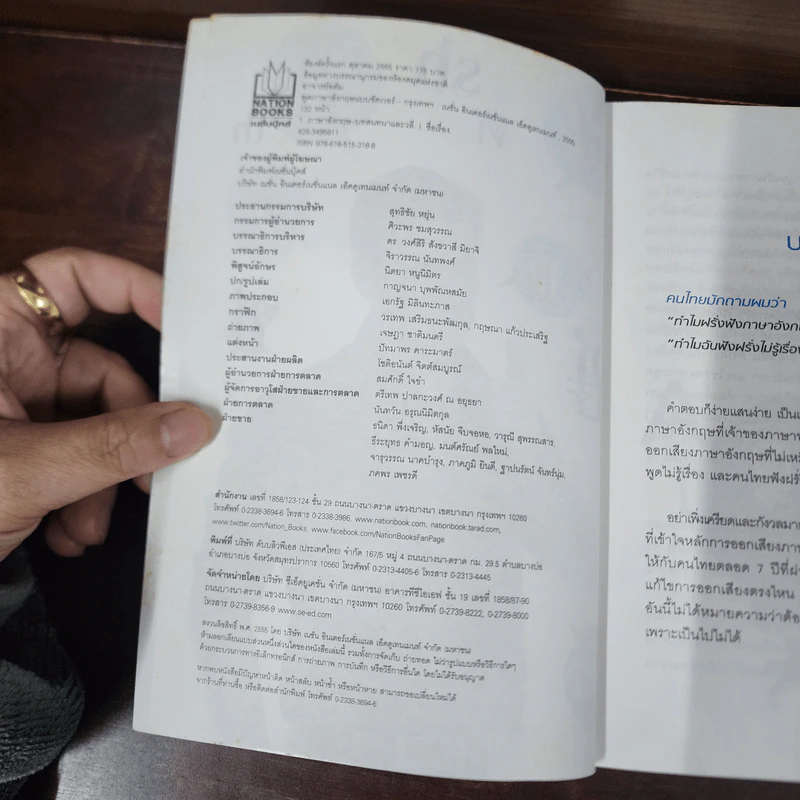 พิมพ์ครั้งแรก ตุลาคม 2555 ราคา 175 บาท
ข้อมูลทางบรรณานุกรมของห้องสมุดแห่งชาติ
อาจารย์อดัม
พูดภาษาอังกฤษแบบชัดเวอร์ - กรุงเทพฯ เนชั่น อินเตอร์เนชั่นแนล เอ็ดดูเทนเมนท์ , 2555
132 หน้า
1. ภาษาอังกฤษ-บทสนทนาและวลี. I. ชื่อเรื่อง.
428.3495911
ISBN 978-616-515-318-8
NATION
BOOKS
เนชั่นบุ๊คส์
เจ้าของผู้พิมพ์ผู้โฆษณา
สำนักพิมพ์เนชั่นบุ๊คส์
บริษัท เนชั่น อินเตอร์เนชั่นแนล เอ็ดดูเทนเมนท์ จำกัด (มหาชน)
ประธานกรรมการบริษัท สุทธิชัย หยุ่น
กรรมการผู้อำนวยการ ศิวะพร ชมสุวรรณ
บรรณาธิการบริหาร ดร. วงศ์สิริ สังขวาสี มิยาจิ
บรรณาธิการ จิราวรรณ นันทพงศ์
พิสูจน์อักษร นิตยา หนูนิมิตร
ปก/รูปเล่ม กาญจนา บุพพัณหสมัย
ภาพประกอบ เอกรัฐ มิลินทะภาส
กราฟิก วรเทพ เสริมธนะพัฒกุล, กฤษณา แก้วประเสริฐ
ถ่ายภาพ เจษฎา ชาติมนตรี
แต่งหน้า ปัทมาพร คาระมาตร์
ประสานงานฝ่ายผลิต โชติอนันต์ จิตต์สมบูรณ์
ผู้อำนวยการฝ่ายการตลาด สมศักดิ์ ใจขำ
ผู้จัดการอาวุโสฝ่ายขายและการตลาด ตรีเทพ ปาลกะวงศ์ ณ อยุธยา
ฝ่ายการตลาด นันทวัน อรุณนิมิตกุล
ฝ่ายขาย ธนิดา พึ่งเจริญ, หัสนัย จีบจอหอ, วารุณี สุพรรณสาร,
ธีระยุทธ คำมอญ, มนต์ศรัณย์ พลใหม่,
จารุวรรณ นาคบำรุง, ภาคภูมิ ยินดี, ฐาปนรัตน์ จันทร์นุ่ม,
ภคพร เพชรดี
สำนักงาน เลขที่ 1858/123-124 ชั้น 29 ถนนบางนา-ตราด แขวงบางนา เขตบางนา กรุงเทพฯ 10260
โทรศัพท์ 0-2338-3694-6 โทรสาร 0-2338-3986, www.nationbook.com, nationbook.tarad.com,
www.twitter.com/Nation_Books, www.facebook.com/NationBooksFanPage
พิมพ์ที่ บริษัท ดับบลิวพีเอส (ประเทศไทย) จำกัด 167/5 หมู่ 4 ถนนบางนา-ตราด กม. 29.5 ตำบลบางบ่อ
อำเภอบางบ่อ จังหวัดสมุทรปราการ 10560 โทรศัพท์ 0-2313-4405-6 โทรสาร 0-2313-4445
จัดจำหน่ายโดย บริษัท ซีเอ็ดยูเคชั่น จำกัด (มหาชน) อาคารทีซีไอเอฟ ชั้น 19 เลขที่ 1858/87-90
ถนนบางนา-ตราด แขวงบางนา เขตบางนา กรุงเทพฯ 10260 โทรศัพท์ 0-2739-8222, 0-2739-8000
โทรสาร 0-2739-8356-9 www.se-ed.com
สงวนลิขสิทธิ์ พ.ศ. 2555 โดย บริษัท เนชั่น อินเตอร์เนชั่นแนล เอ็ดดูเทนเมนท์ จำกัด (มหาชน)
ห้ามลอกเลียนแบบส่วนหนึ่งส่วนใดของหนังสือเล่มนี้ รวมทั้งการจัดเก็บ ถ่ายทอด ไม่ว่ารูปแบบหรือวิธีการใดๆ
ด้วยกระบวนการทางอิเล็กทรอนิกส์ การถ่ายภาพ การบันทึก หรือวิธีการอื่นใด โดยไม่ได้รับอนุญาต
หากพบหนังสือมีปัญหาหน้าติด หน้าสลับ หน้าซ้ำ หรือหน้าหาย สามารถขอเปลี่ยนใหม่ได้
จากร้านที่ท่านซื้อ หรือติดต่อสำนักพิมพ์ โทรศัพท์ 0-2338-3694-6
บ
คนไทยมักถามผมว่า
"ทำไมฝรั่งฟังภาษาอังก
"ทำไมฉันฟังฝรั่งไม่รู้เรื่อง
คำตอบก็ง่ายแสนง่าย เป็น
ภาษาอังกฤษที่เจ้าของภาษา
ออกเสียงภาษาอังกฤษที่ไม่เห
พูดไม่รู้เรื่อง และคนไทยฟังฝรั่
อย่าเพิ่งเครียดและกังวลมา
ที่เข้าใจหลักการออกเสียงภา
ให้กับคนไทยตลอด 7 ปีที่ผ่
แก้ไขการออกเสียงตรงไหน
อันนี้ไม่ได้หมายความว่าต้อ
เพราะเป็นไปไม่ได้